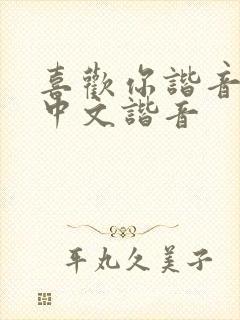 喜歡你諧音
中文諧音
平丸久美子